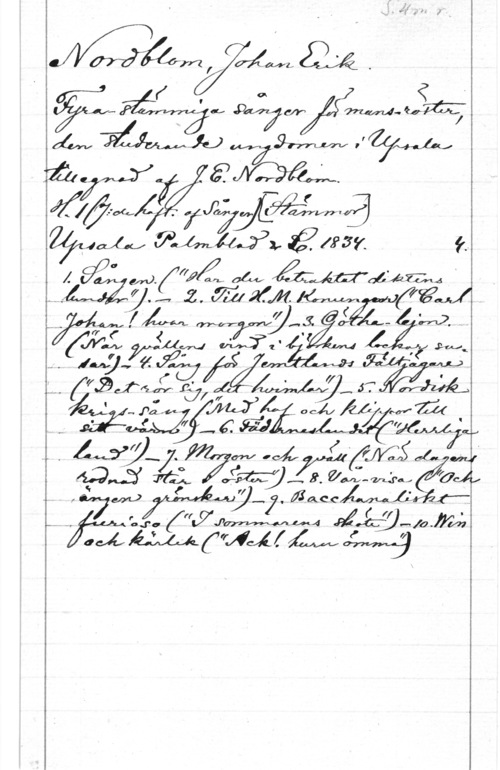 S. 4 m r.
Nordblom, Johan Erik.
Fyra-stämmiga sånger för mans-röster,
den studerande ungdomen i Upsala
tillegnad af J. E. Nordblom.
H. 1 (7:de häft. af Sånger) [Stämmor]
Upsala Palmblad & C. 1834. 4.
1. Sången. ("Har du betraktat diktens
lunder"). - 2. Till H. M. Konungen ("Carl
Johan! hvar morgon") - 3. Götha-lejon.
("När qvällens vind i björkens lockar su-
sar") - 4. Sång för Jemtlands Fältjägare
("Det rör sig, det hvimlar") - 5. Nordisk
krigs-sång ("Med haf och klippor till
sitt värn") - 6. Fäderneslandet ("Herrliga
land") - 7. Morgon och qväll ("När dagens
rodnad står i öster") - 8. Vår-visa ("Och
ängen grönskar") - 9. Bacchanaliskt
furioso ("I sommarens sköte") - 10. Win
och kärlek ("Ack! huru ömma")